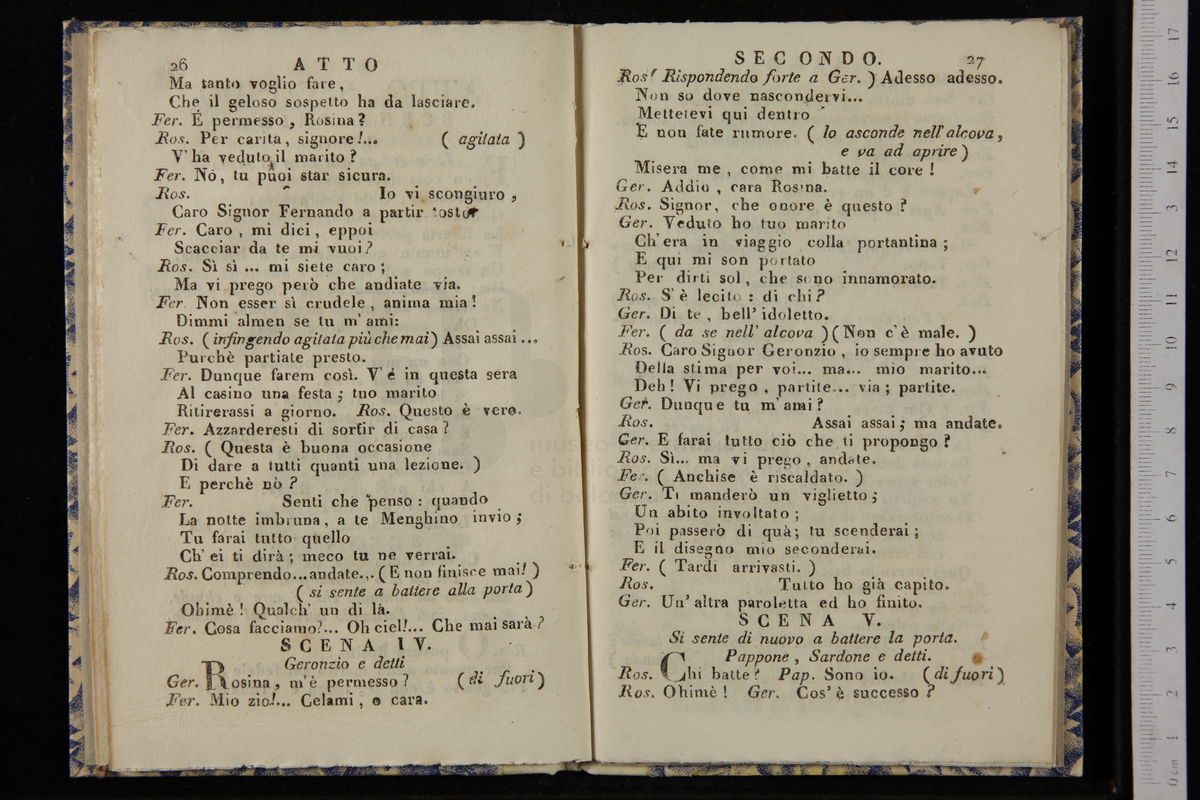 26 ATTO
Ma tanto voglio fare,
Che il geloso sospetto ha da lasciare.
Fer. É permesso, Rosina?
Ros. Per carita, signore!... ( agitata )
V' ha veduto il marito?
Fer. Nò, tu puoi star sicura.
Ros. Io vi scongiuro,
Caro Signor Fernando a partir tosto
Fer. Caro, mi dici, eppoi
Scacciar da te mi vuoi?
Ros. Sì sì ... mi siete caro;
Ma vi prego però che andiate via.
Fer. Non esser sì crudele, anima mia!
Dimmi almen se tu m' ami:
Ros. ( infingendo agitata più che mai ) Assai assai ...
Purchè partiate presto.
Fer. Dunque farem così. V' é in questa sera
Al casino una festa; tuo marito
Ritirerassi a giorno. Ros. Questo è vero.
Fer. Azzarderesti di sortir di casa?
Ros. ( Questa è buona occasione
Di dare a tutti quanti una lezione. )
E perchè nò?
Fer. Senti che penso: quando
La notte imbruna, a te Menghino invio;
Tu farai tutto quello
Ch' ei ti dirà; meco tu ne verrai.
Ros. Comprendo...andate... ( E non finisce mai! )
( si sente a battere alla porta )
Ohimè! Qualch' un di là.
Fer. Cosa facciamo?... Oh ciel!... Che mai sarà?
SCENA IV.
Geronzio e detti
Ger. Rosina, m'è permesso? ( di fuori )
Fer. Mio zio!... Celami, o cara.
SECONDO. 27
Ros. Rispondendo forte a Ger. ) Adesso adesso.
Non so dove nascondervi...
Mettetevi qui dentro
E non fate rumore. ( lo asconde nell' alcova,
e va ad aprire )
Misera me, come mi batte il core!
Ger. Addio, cara Rosina.
Ros. Signor, che onore è questo?
Ger. Veduto ho tuo marito
Ch' era in viaggio colla portantina;
E qui mi son portato
Per dirti sol, che sono innamorato.
Ros. S' è lecito: di chi?
Ger. Di te, bell' idoletto.
Fer. ( da se nell' alcova ) ( Non c' è male. )
Ros. Caro Signor Geronzio, io sempre ho avuto
Della stima per voi... ma... mio marito...
Deh! Vi prego, partite... via; partite.
Ger. Dunque tu m' ami?
Ros. Assai assai; ma andate.
Ger. E farai tutto ciò che ti propongo?
Ros. Sì... ma vi prego, andate.
Fer. ( Anchise è riscaldato. )
Ger. Ti manderò un viglietto;
Un abito involtato;
Poi passerò di quà; tu scenderai;
E il disegno mio seconderai.
Fer. ( Tardi arrivasti. )
Ros. Tutto ho già capito.
Ger. Un' altra paroletta ed ho finito.
SCENA V.
Si sente di nuovo a battere la porta.
Pappone, Sardone e detti.
Ros. Chi batte? Pap. Sono io. ( di fuori )
Ros. Ohimè! Ger. Cos' è successo?